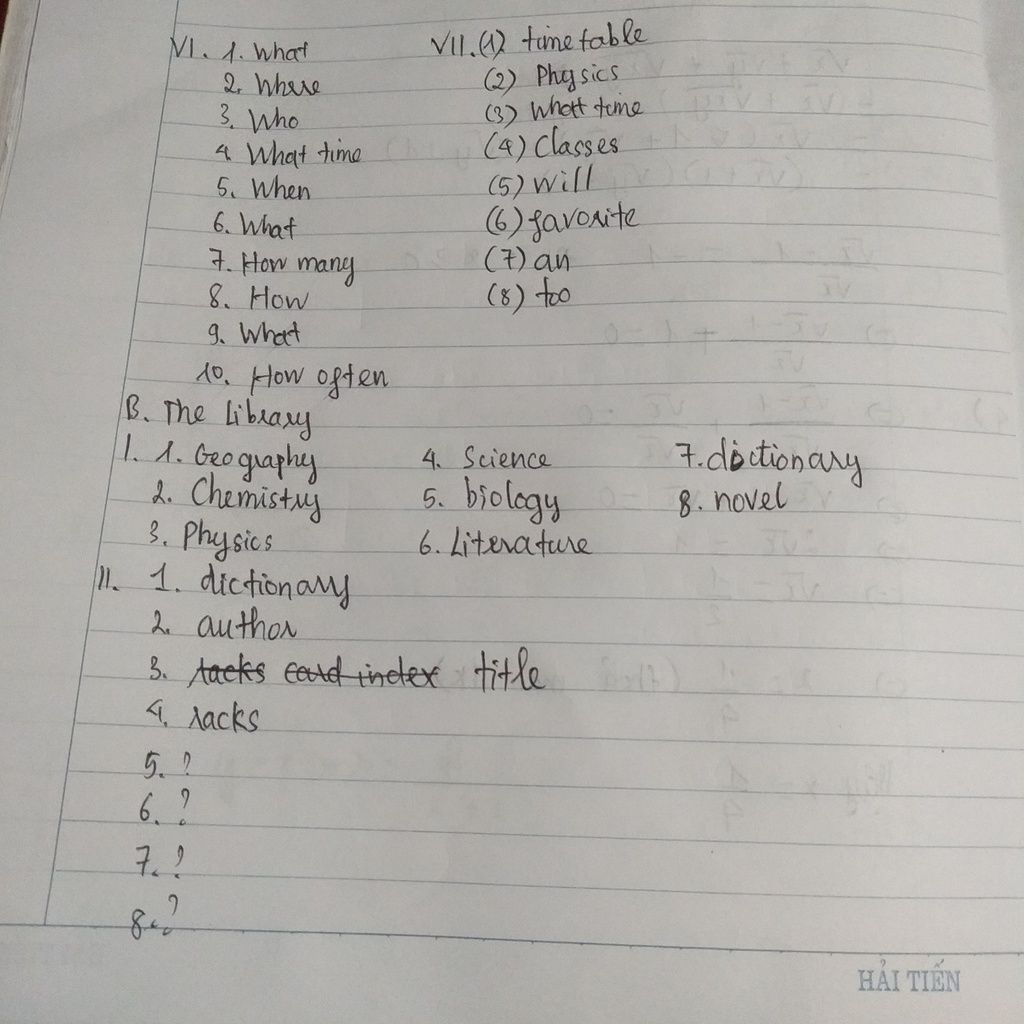 VI. 1. What VII. (1) timetable
2. Where (2) Physics
3. Who (3) What time
4. What time (4) Classes
5. When (5) will
6. What (6) favorite
7. How many (7) an
8. How (8) too
9. What
10. How often
B. The Library
I. 1. Geography 4. Science 7. dictionary
2. Chemistry 5. biology 8. novel
3. Physics 6. Literature
II. 1. dictionary
2. author
3. racks card index title
4. racks
5. ?
6. ?
7. ?
8. ?
HẢI TIẾN